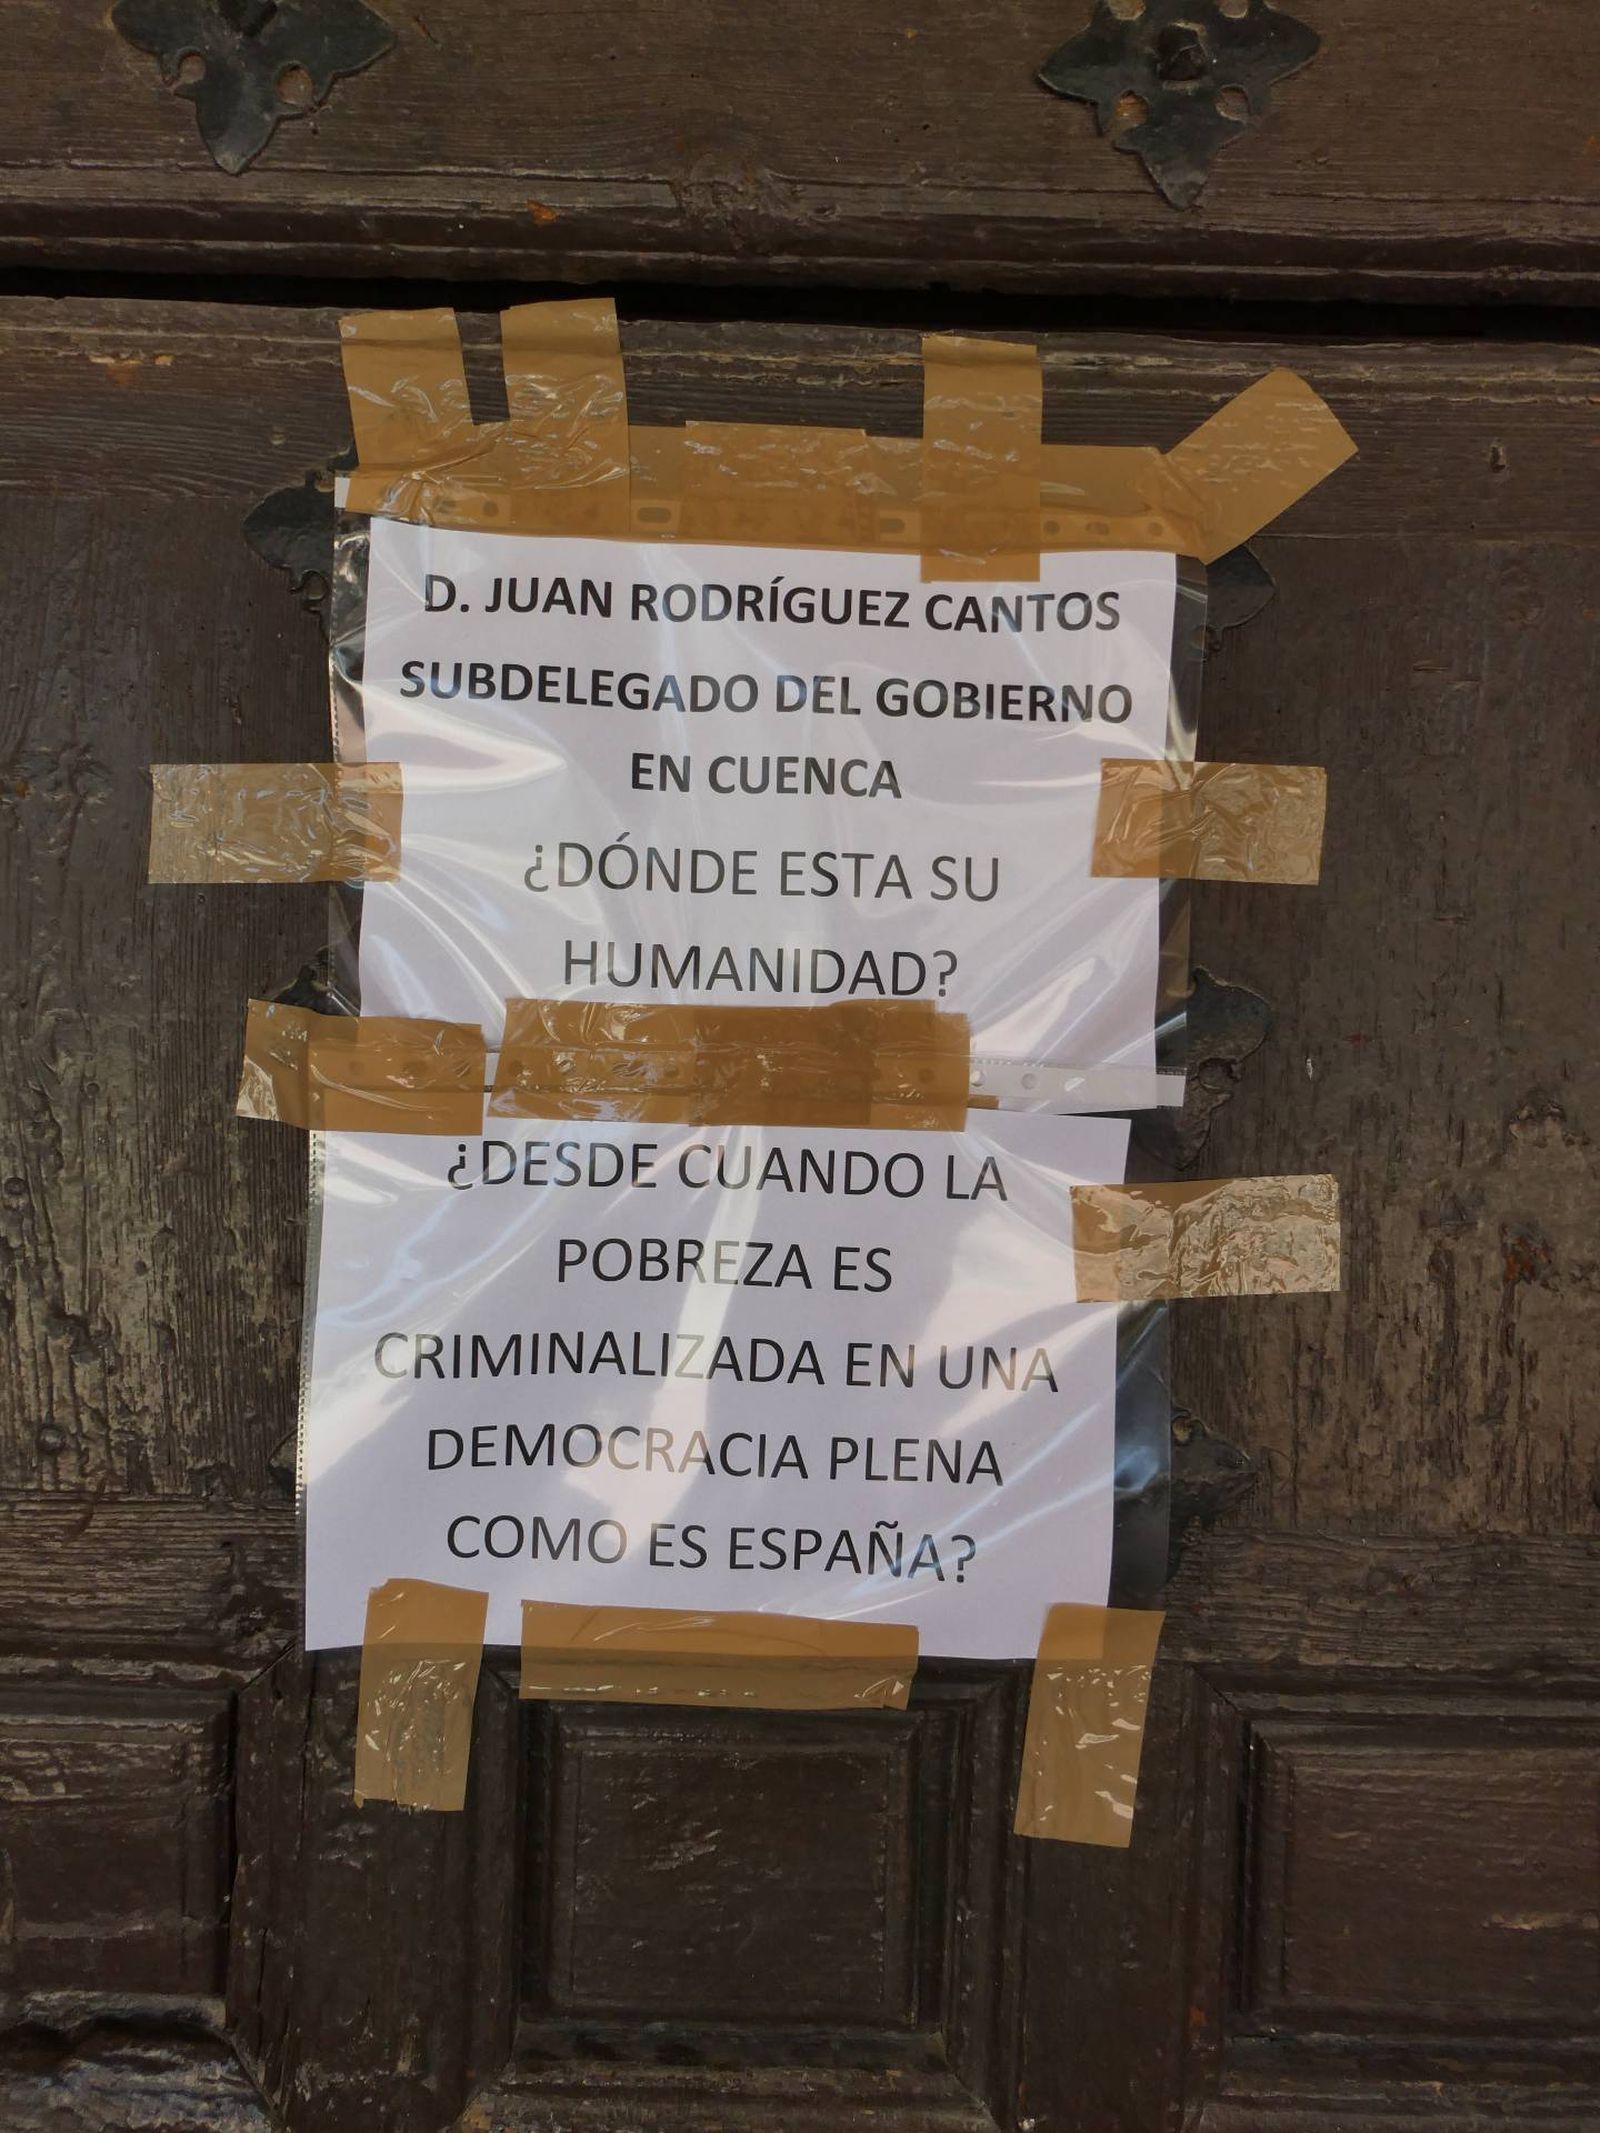 D. JUAN RODRÍGUEZ CANTOS
SUBDELEGADO DEL GOBIERNO
EN CUENCA
¿DÓNDE ESTA SU
HUMANIDAD?
¿DESDE CUANDO LA
POBREZA ES
CRIMINALIZADA EN UNA
DEMOCRACIA PLENA
COMO ES ESPAÑA?